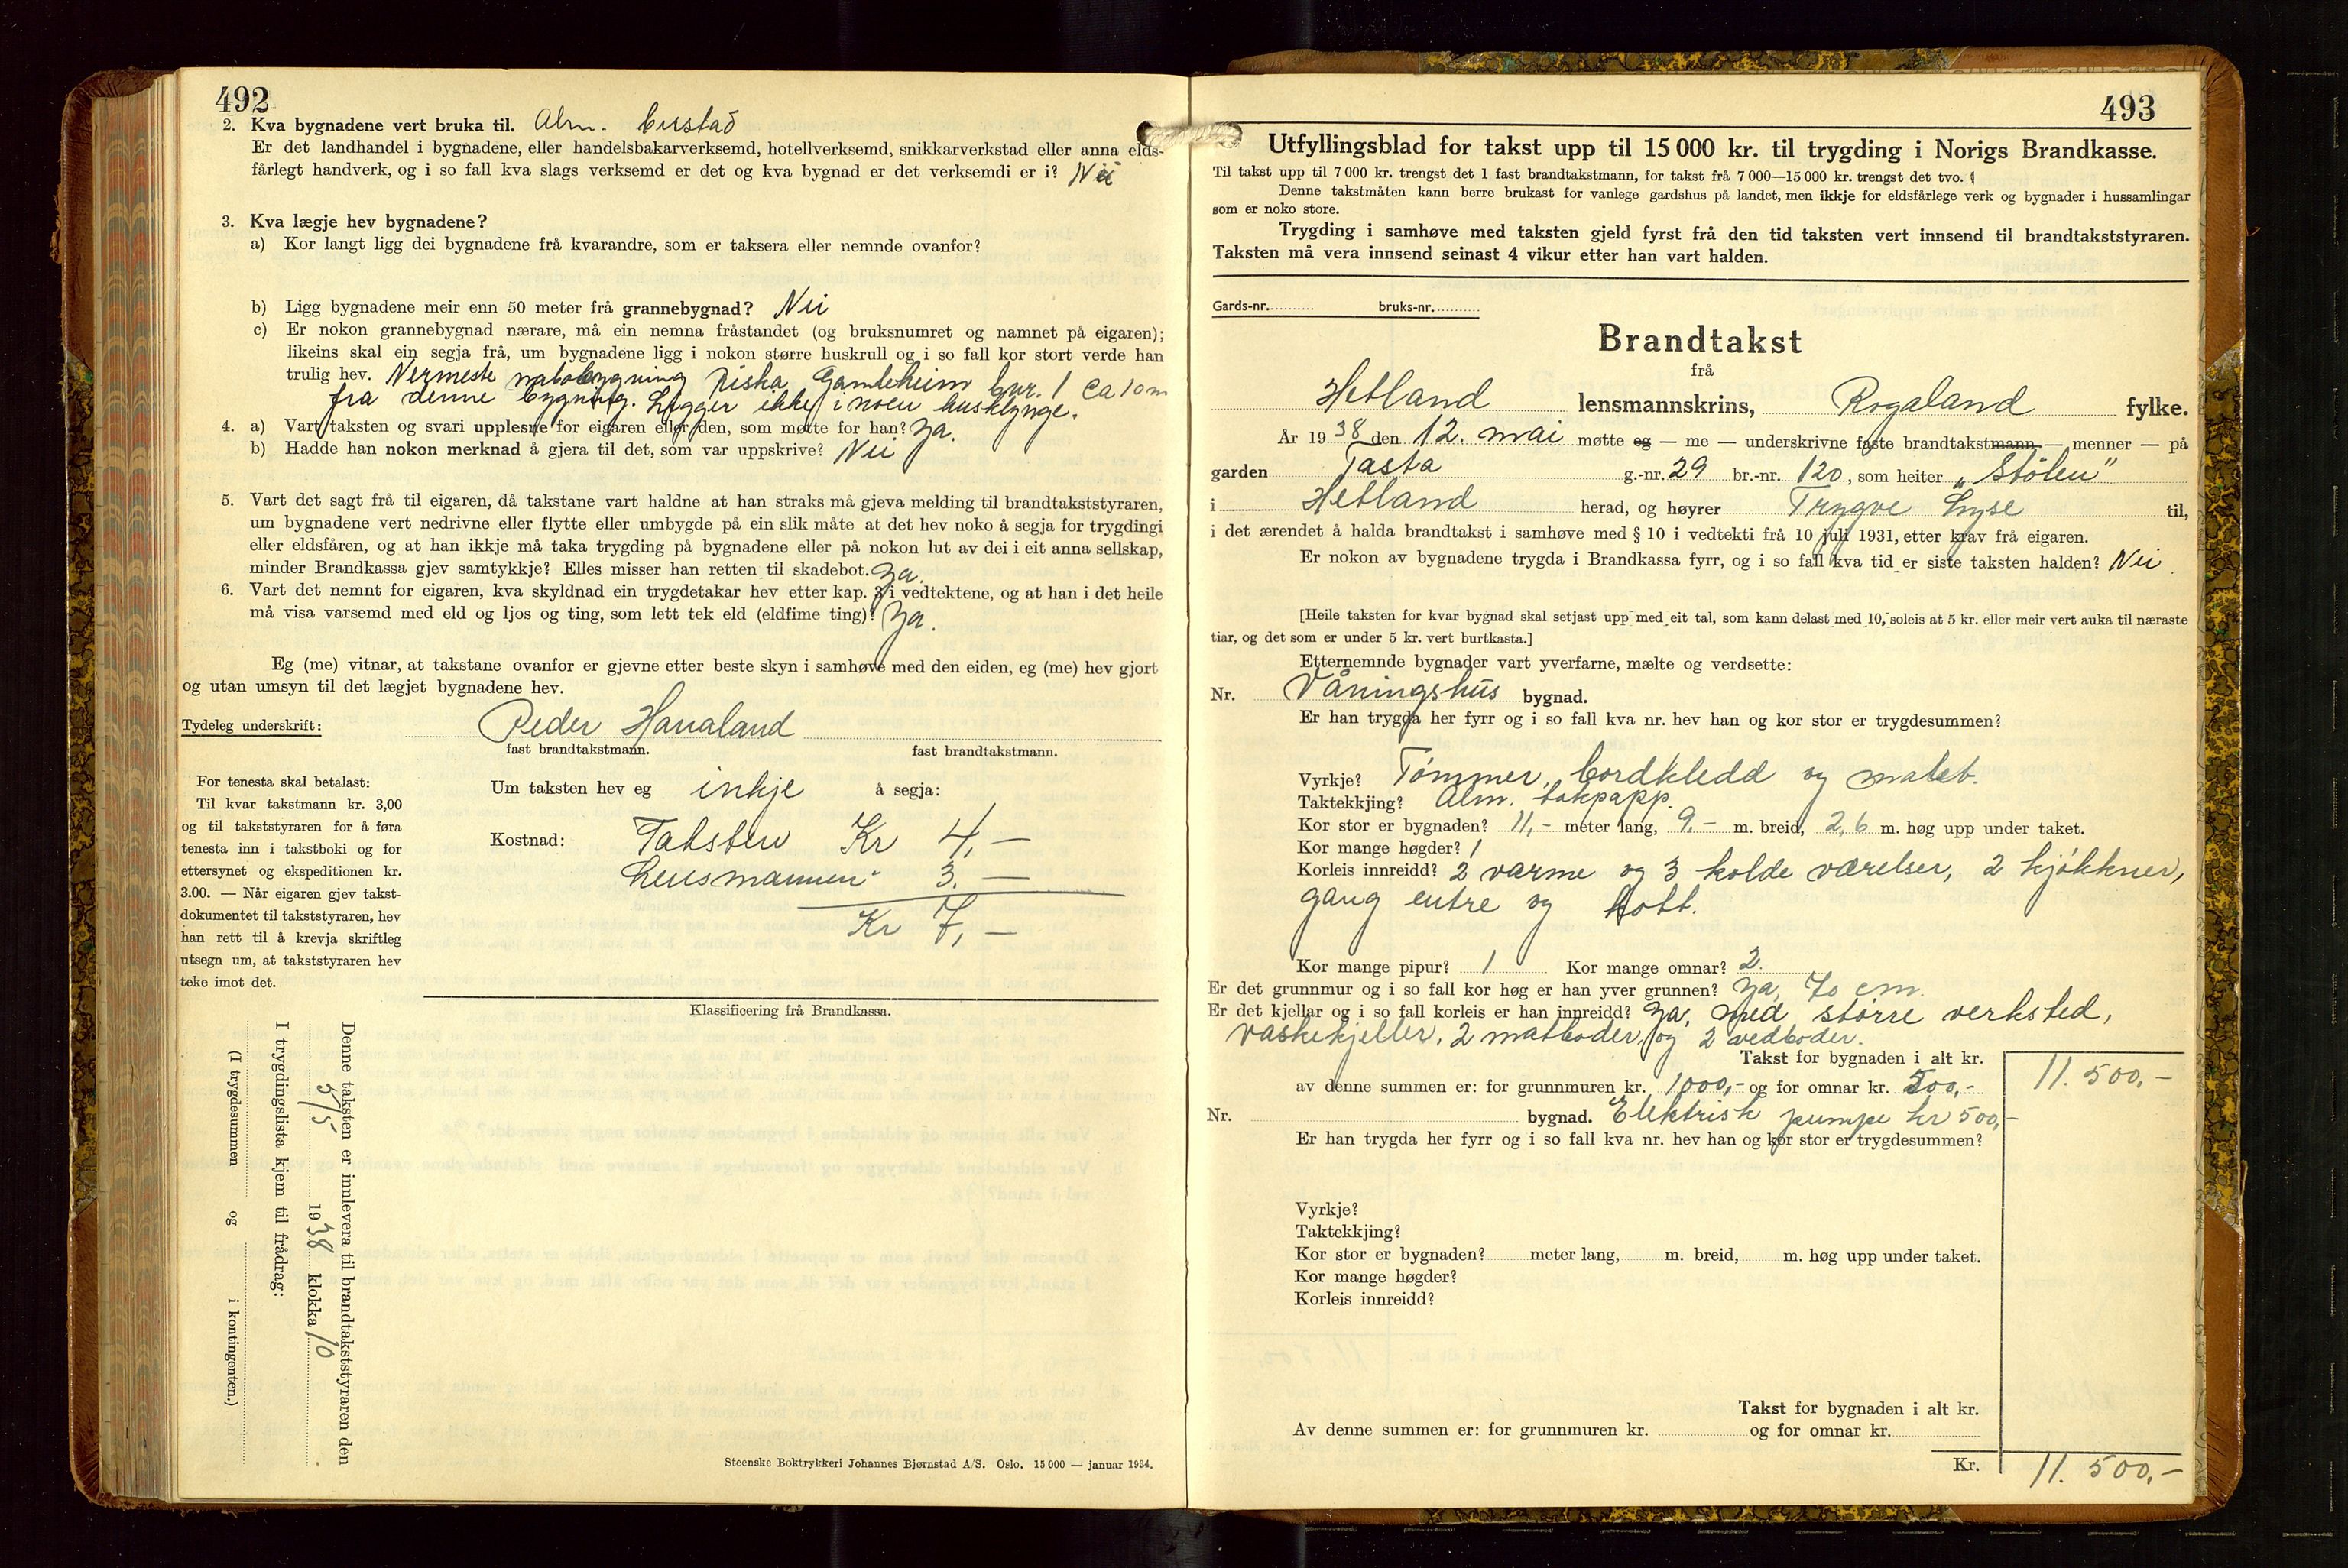 492
2. Kva bygnadene vert bruka til. Alm. bustad
Er det landhandel i bygnadene, eller handelsbakarverksemd, hotellverksemd, snikkarverkstad eller anna elds-
fårlegt handverk, og i so fall kva slags verksemd er det og kva bygnad er det verksemdi er i? Nei
3. Kva lægje hev bygnadene?
a) Kor langt ligg dei bygnadene frå kvarandre, som er taksera eller nemnde ovanfor?
b) Ligg bygnadene meir enn 50 meter frå grannebygnad? Nei
c) Er nokon grannebygnad nærare, må ein nemna fråstandet (og bruksnumret og namnet på eigaren);
likeins skal ein segja frå, um bygnadene ligg i nokon større huskrull og i so fall kor stort verde han
trulig hev. Nermeste nabobygning Riska, Gamleheim bnr. 1 ca 10 m
fra denne bygning. Ligger ikke i noen husklynge.
4. a) Vart taksten og svari upplesne for eigaren eller den, som møtte for han? Ja.
b) Hadde han nokon merknad å gjera til det, som var uppskrive? Nei
5. Vart det sagt frå til eigaren, då takstane vart haldne at han straks må gjeva melding til brandtakststyraren,
um bygnadene vert nedrivne eller flytte eller umbygde på ein slik måte at det hev noko å segja for trygdingi
eller eldsfåren, og at han ikkje må taka trygding på bygnadene eller på nokon lut av dei i eit anna sellskap,
minder Brandkassa gjev samtykkje? Elles misser han retten til skadebot. Ja.
6. Vart det nemnt for eigaren, kva skyldnad ein trygdetakar hev etter kap. 3 i vedtektene, og at han i det heile
må visa varsemd med eld og ljos og ting, som lett tek eld (eldfime ting)? Ja.
Eg (me) vitnar, at takstane ovanfor er gjevne etter beste skyn i samhøve med den eiden, eg (me) hev gjort
og utan umsyn til det lægjet bygnadene hev.
Tydeleg underskrift: Peder Havaland
fast brandtakstmann. fast brandtakstmann.
For tenesta skal betalast:
Til kvar takstmann kr. 3,00
og til takststyraren for å føra
tenesta inn i takstboki og for
ettersynet og ekspeditionen kr.
3.00. — Når eigaren gjev takst-
dokumentet til takststyraren, hev
han rett til å krevja skriftleg
utsegn um, at takststyraren hev
teke imot det.
Um taksten hev eg inkje å segja:
Kostnad: Taksten Kr 4,—
Lensmannen " 3.—
Kr 7,—
Klassificering frå Brandkassa.
Denne taksten er innlevera til brandtakststyraren den
5/5 1938 klokka 10
I trygdingslista kjem til frådrag:
(I trygdesummen og i kontingenten.)
Steenske Boktrykkeri Johannes Bjørnstad A/S. Oslo. 15 000 — januar 1934.
493
Utfyllingsblad for takst upp til 15 000 kr. til trygding i Norigs Brandkasse.
Til takst upp til 7 000 kr. trengst det 1 fast brandtakstmann, for takst frå 7 000—15 000 kr. trengst det tvo.
Denne takstmåten kann berre brukast for vanlege gardshus på landet, men ikkje for eldsfårlege verk og bygnader i hussamlingar
som er noko store.
Trygding i samhøve med taksten gjeld fyrst frå den tid taksten vert innsend til brandtakststyraren.
Taksten må vera innsend seinast 4 vikur etter han vart halden.
Gards-nr. bruks-nr.
Brandtakst
frå
Hetland lensmannskrins, Rogaland fylke.
År 1938 den 12. mai møtte eg — me — underskrivne faste brandtakstmann — menner — på
garden Tasta g.-nr. 29 br.-nr. 120, som heiter „Stølen"
i Hetland herad, og høyrer Trygve Lyse til,
i det ærendet å halda brandtakst i samhøve med § 10 i vedtekti frå 10 juli 1931, etter krav frå eigaren.
Er nokon av bygnadene trygda i Brandkassa fyrr, og i so fall kva tid er siste taksten halden? Nei
[Heile taksten for kvar bygnad skal setjast upp med eit tal, som kann delast med 10, soleis at 5 kr. eller meir vert auka til næraste
tiar, og det som er under 5 kr. vert burtkasta.]
Etternemnde bygnader vart yverfarne, mælte og verdsette:
Nr. Våningshus bygnad.
Er han trygda her fyrr og i so fall kva nr. hev han og kor stor er trygdesummen?
Vyrkje? Tømmer, bordkledd og malet.
Taktekkjing? Alm. takpapp.
Kor stor er bygnaden? 11,- meter lang, 9,- m. breid, 2,6 m. høg upp under taket.
Kor mange høgder? 1
Korleis innreidd? 2 varme og 3 kolde værelser, 2 kjøkkner,
gang entre og kott.
Kor mange pipur? 1 Kor mange omnar? 2.
Er det grunnmur og i so fall kor høg er han yver grunnen? Ja, 70 cm.
Er det kjellar og i so fall korleis er han innreidd? Ja, med større verksted,
vaskekjeller, 2 matboder, og 2 vedboder.
Takst for bygnaden i alt kr.
av denne summen er: for grunnmuren kr. 1000,- og for omnar kr. 500,- 11.500,-
Nr. bygnad. Elektrisk pumpe kr 500,-
Er han trygda her fyrr og i so fall kva nr. hev han og kor stor er trygdesummen?
Vyrkje?
Taktekkjing?
Kor stor er bygnaden? meter lang, m. breid, m. høg upp under taket.
Kor mange høgder?
Korleis innreidd?
Takst for bygnaden i alt kr.
Av denne summen er: for grunnmuren kr. og for omnar kr.
Kr. 11.500,-